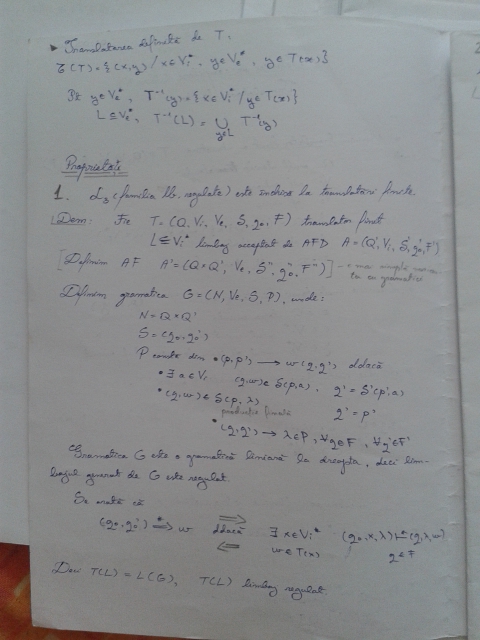 ▸ Translatarea definită de T,
𝒯(T) = {(x,y) / x ∈ Vi*, y ∈ Ve*, y ∈ T(x)}
Pt y ∈ Ve*, T⁻¹(y) = {x ∈ Vi* / y ∈ T(x)}
L ⊆ Ve*, T⁻¹(L) = ∪ T⁻¹(y)
y∈L
Proprietăți
1. L3 (familia lb. regulate) este închisă la translatări finite.
Dem: Fie T = (Q, Vi, Ve, S, q0, F) translator finit
L ⊆ Vi* limbaj acceptat de AFD A = (Q', Vi, S', q0', F')
[Definim AF A' = (Q×Q', Ve, S'', q0'', F'')] → mai simplu
cu gramatici
Definim gramatica G = (N, Ve, S, P), unde:
N = Q×Q'
S = (q0, q0')
P constă din • (p, p') → w(q, q') ddacă
• ∃ a ∈ Vi (q,w) ∈ S(p,a), q' = S'(p',a)
• (q,w) ∈ S(p, λ) q' = p'
producție finală
• (q,q') → λ ∈ P, ∀q∈F, ∀q'∈F'
Gramatica G este o gramatică liniară la dreapta, deci lim-
bajul generat de G este regulat.
Se arată că ⟹
(q0, q0') ⟹* w ddacă ∃ x ∈ Vi* (q0, x, λ) ⊢* (q, λ, w)
⟸ w ∈ T(x) q ∈ F
Deci T(L) = L(G), T(L) limbaj regulat